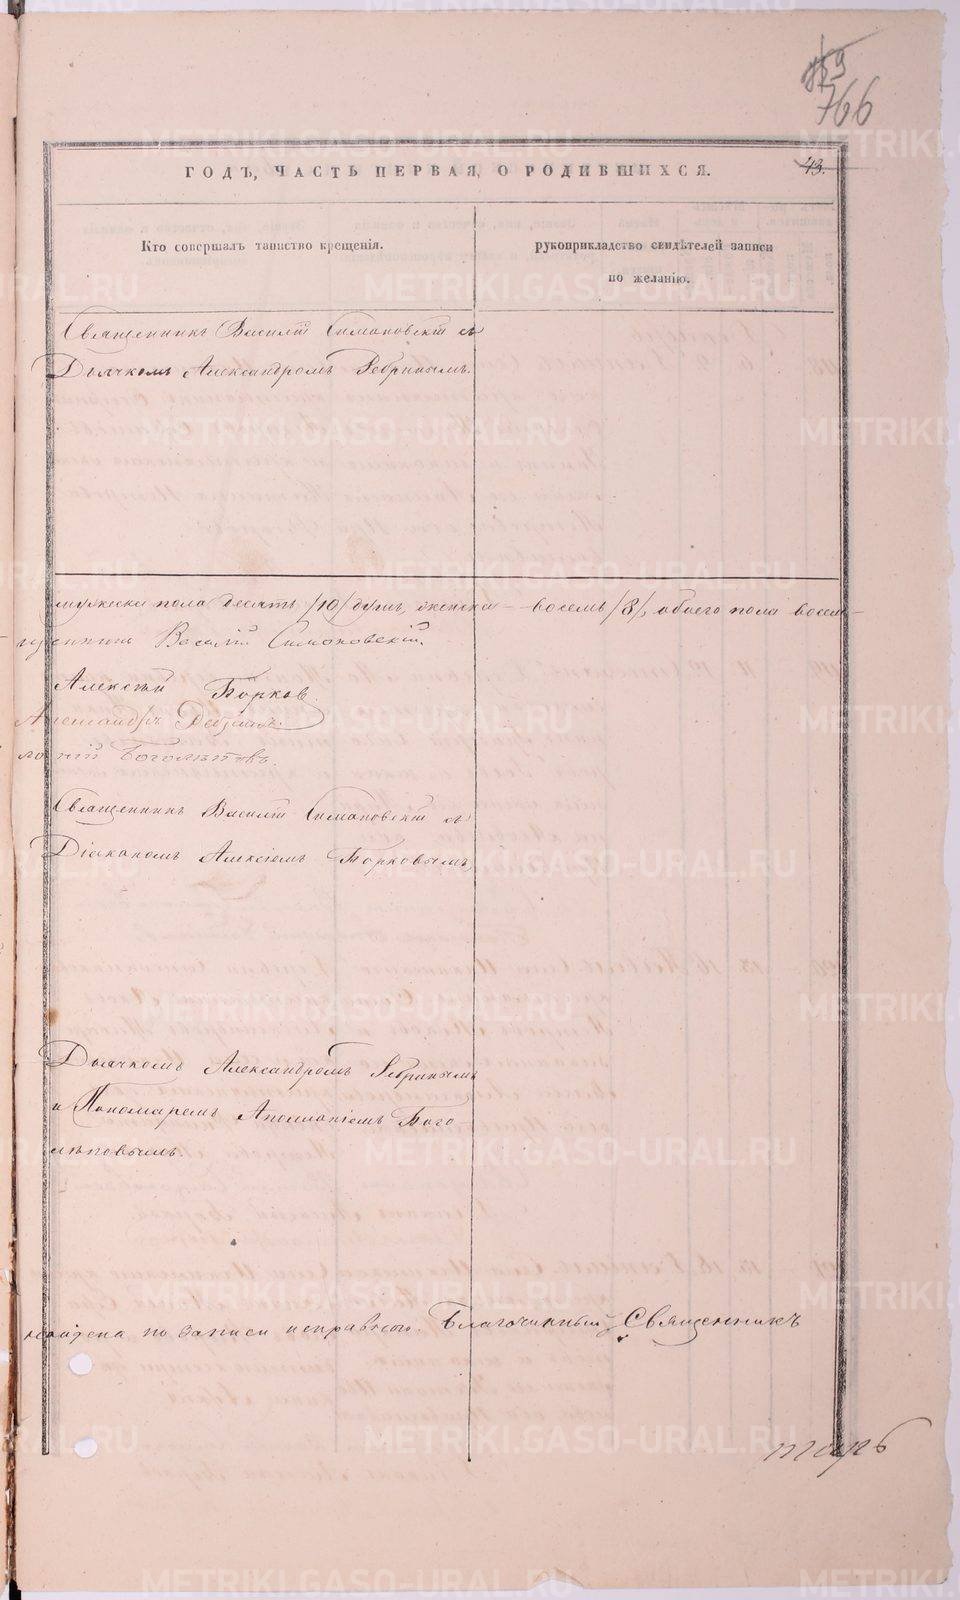 766
ГОДЪ, ЧАСТЬ ПЕРВАЯ, О РОДИВШИХСЯ.
43.
Кто совершалъ таинство крещенія.
рукоприкладство свидѣтелей записи
по желанію.
Священникъ Василій Симановскій съ
Дьячкомъ Александромъ
мужеска пола десять /10/ душъ, женска – восемь /8/, обоего пола восем-
Василій Симановскій.
Алексѣй Борков
Александръ
Боголѣповъ.
Священникъ Василій Симановскій съ
Діакономъ Алексіемъ Борковымъ
Дьячкомъ Александромъ
и Пономаремъ Аполлоніемъ Бого-
лѣповымъ.
по записи исправною. Благочинный Священникъ
METRIKI.GASO-URAL.RU